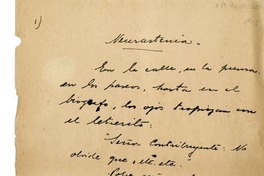 1)
Neurastenia.
En la calle, en la prensa,
en los paseos, hasta en el
biógrafo, los ojos tropiezan con
el letrerito:
"Señor Contribuyente: No
olvide que, etc. etc.